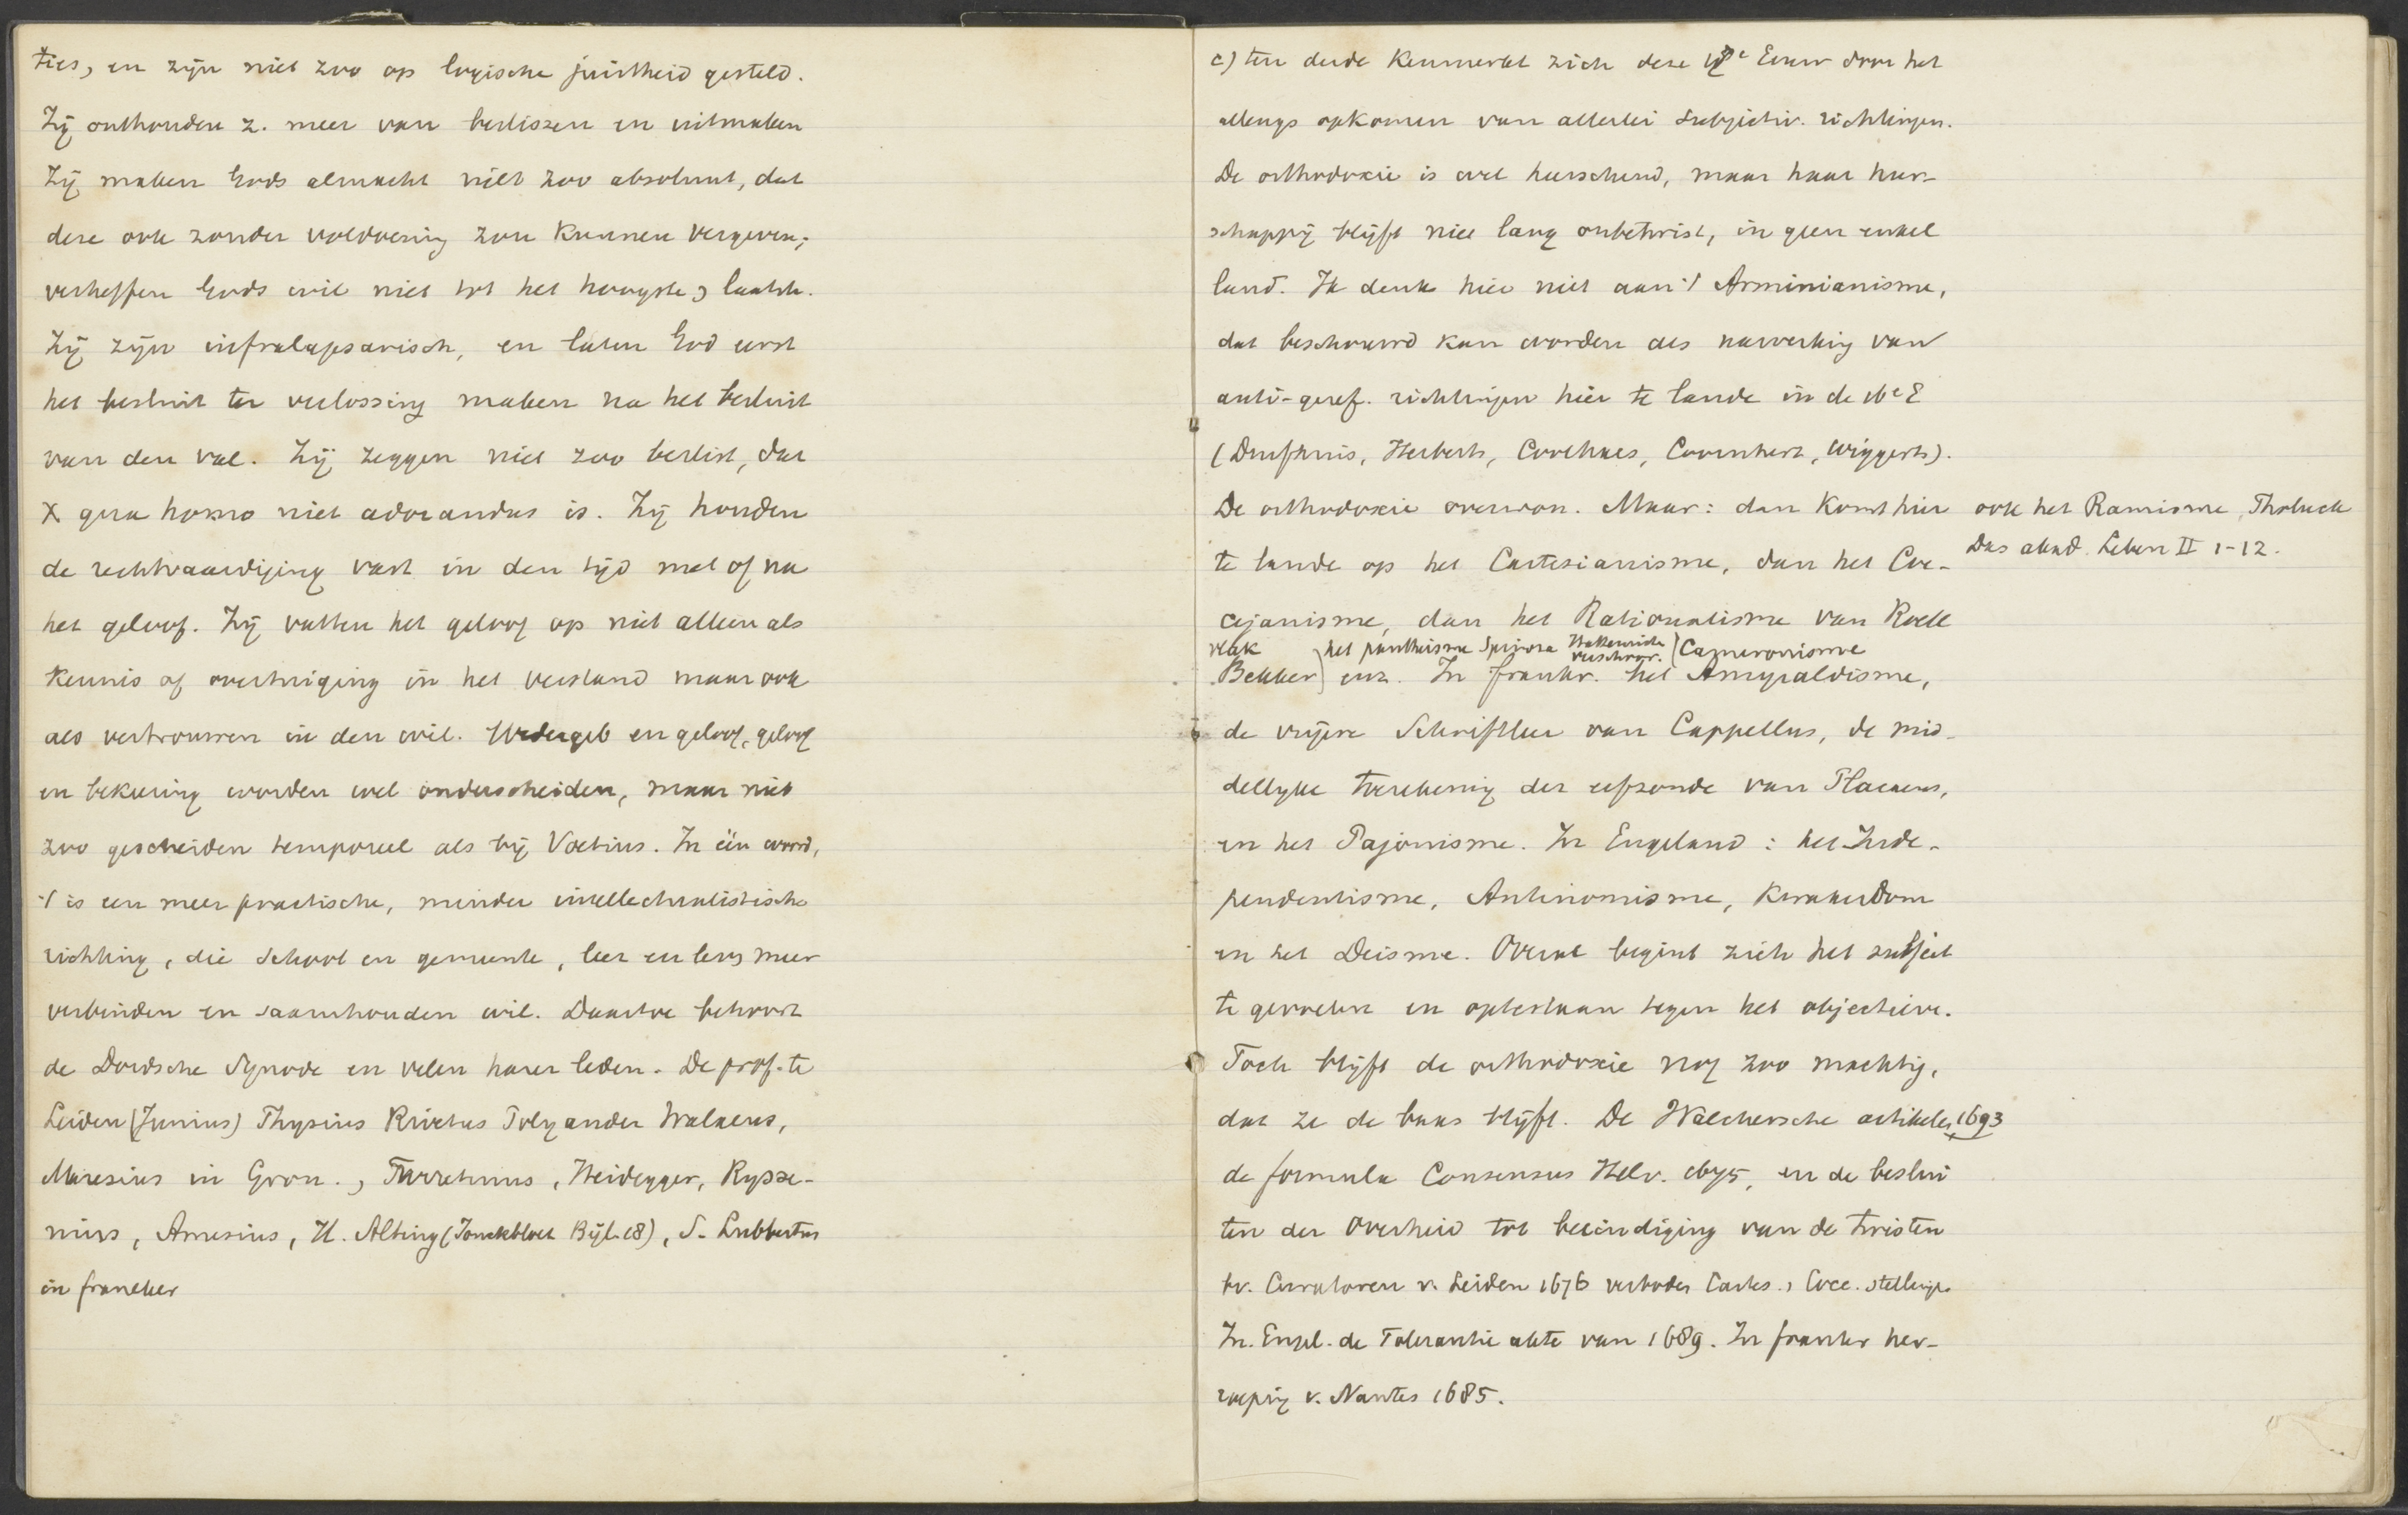 ties, en zijn niet zoo op logische juistheid gesteld.
Zij onthouden z. meer van beslissen en uitmaken
Zij maken Gods almacht niet zoo absoluut, dat
deze ook zonder voldoening zou kunnen vergeven;
verheffen Gods wil niet tot het hoogste, laatste.
Zij zijn infralapsarisch, en laten God eerst
het besluit ter verlossing maken na het besluit
van den val. Zij zeggen niet zoo beslist, dat
X qua homo niet adorandus is. Zij houden
de rechtvaardiging vast in den tijd met of na
het geloof. Zij vatten het geloof op niet alleen als
kennis of overtuiging in het verstand maar ook
als vertrouwen in den wil. Wedergeb en geloof, geloof
en bekeering worden wel onderscheiden, maar niet
zoo gescheiden temporeel als bij Voetius. In één woord,
't is een meer practische, minder intellectualistische
richting, die school en gemeente, leer en leven meer
verbinden en saamhouden wil. Daartoe behoort
de Dordsche Synode en velen harer leden. De prof. te
Leiden (Junius) Thysius Rivetus Polyander Walaeus,
Maresius in Gron., Turretinus, Heidegger, Rysse-
nius, Amesius, H. Alting (Jonckbloet Bijl. 18), S. Lubbertus
in franeker
c) ten derde kenmerkt zich deze 17e Eeuw door het
allengs opkomen van allerlei subjectiv. richtingen.
De orthodoxie is wel heerschend, maar haar heer-
schappij blijft niet lang onbetwist, in geen enkel
land. Ik denk hier niet aan 't Arminianisme,
dat beschouwd kan worden als nawerking van
anti-geref. richtingen hier te lande in de 16e E
(Duifhuis, Herberts, Coolhaes, Coornhert, Wiggerts).
De orthodoxie overwon. Maar: dan komt hier ook het Ramisme, Tholuck
Das akad. Leben II 1-12.
te lande op het Cartesianisme, dan het Coc-
cejanisme, dan het Rationalisme van Roell
Vlak het pantheisme Spinoza Hattemiste verschoor. Cameronisme
Bekker enz. In frankr. het Amyraldisme,
de vrijere Schriftleer van Cappellus, de mid-
dellyke toerekening der erfzonde van Placaeus,
en het Pajonisme. In Engeland: het Inde-
pendentisme, Antinomisme, Kwakerdom
en het Deisme. Overal begint zich het subject
te gevoelen en optestaan tegen het objectieve.
Toch blijft de orthodoxie nog zoo machtig,
dat ze de baas blijft. De Walchersche artikelen 1693
de formula Consensus Helv. 1675, en de beslui
ten der Overheid tot beeindiging van de twisten
bv. Curatoren v. Leiden 1676 verboden Cartes., Cocc. stellingen
In Engel. de Tolerantie akte van 1689. In frankr her-
roeping v. Nantes 1685.